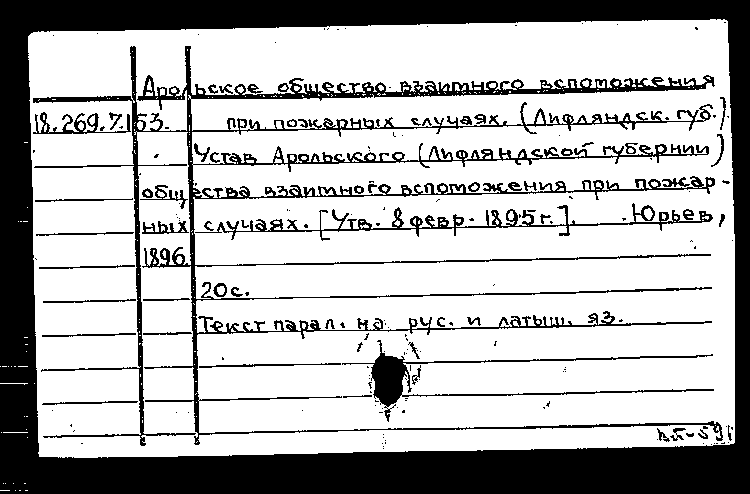 Арольское общество взаимного вспоможения
18.269.7.153. при пожарных случаях. (Лифляндск. губ.)
Устав Арольского (Лифляндской губернии)
общества взаимного вспоможения при пожар-
ных случаях. [Утв. 8 февр. 1895 г.]. Юрьев,
1896.
20 с.
Текст парал. на рус. и латыш. яз.